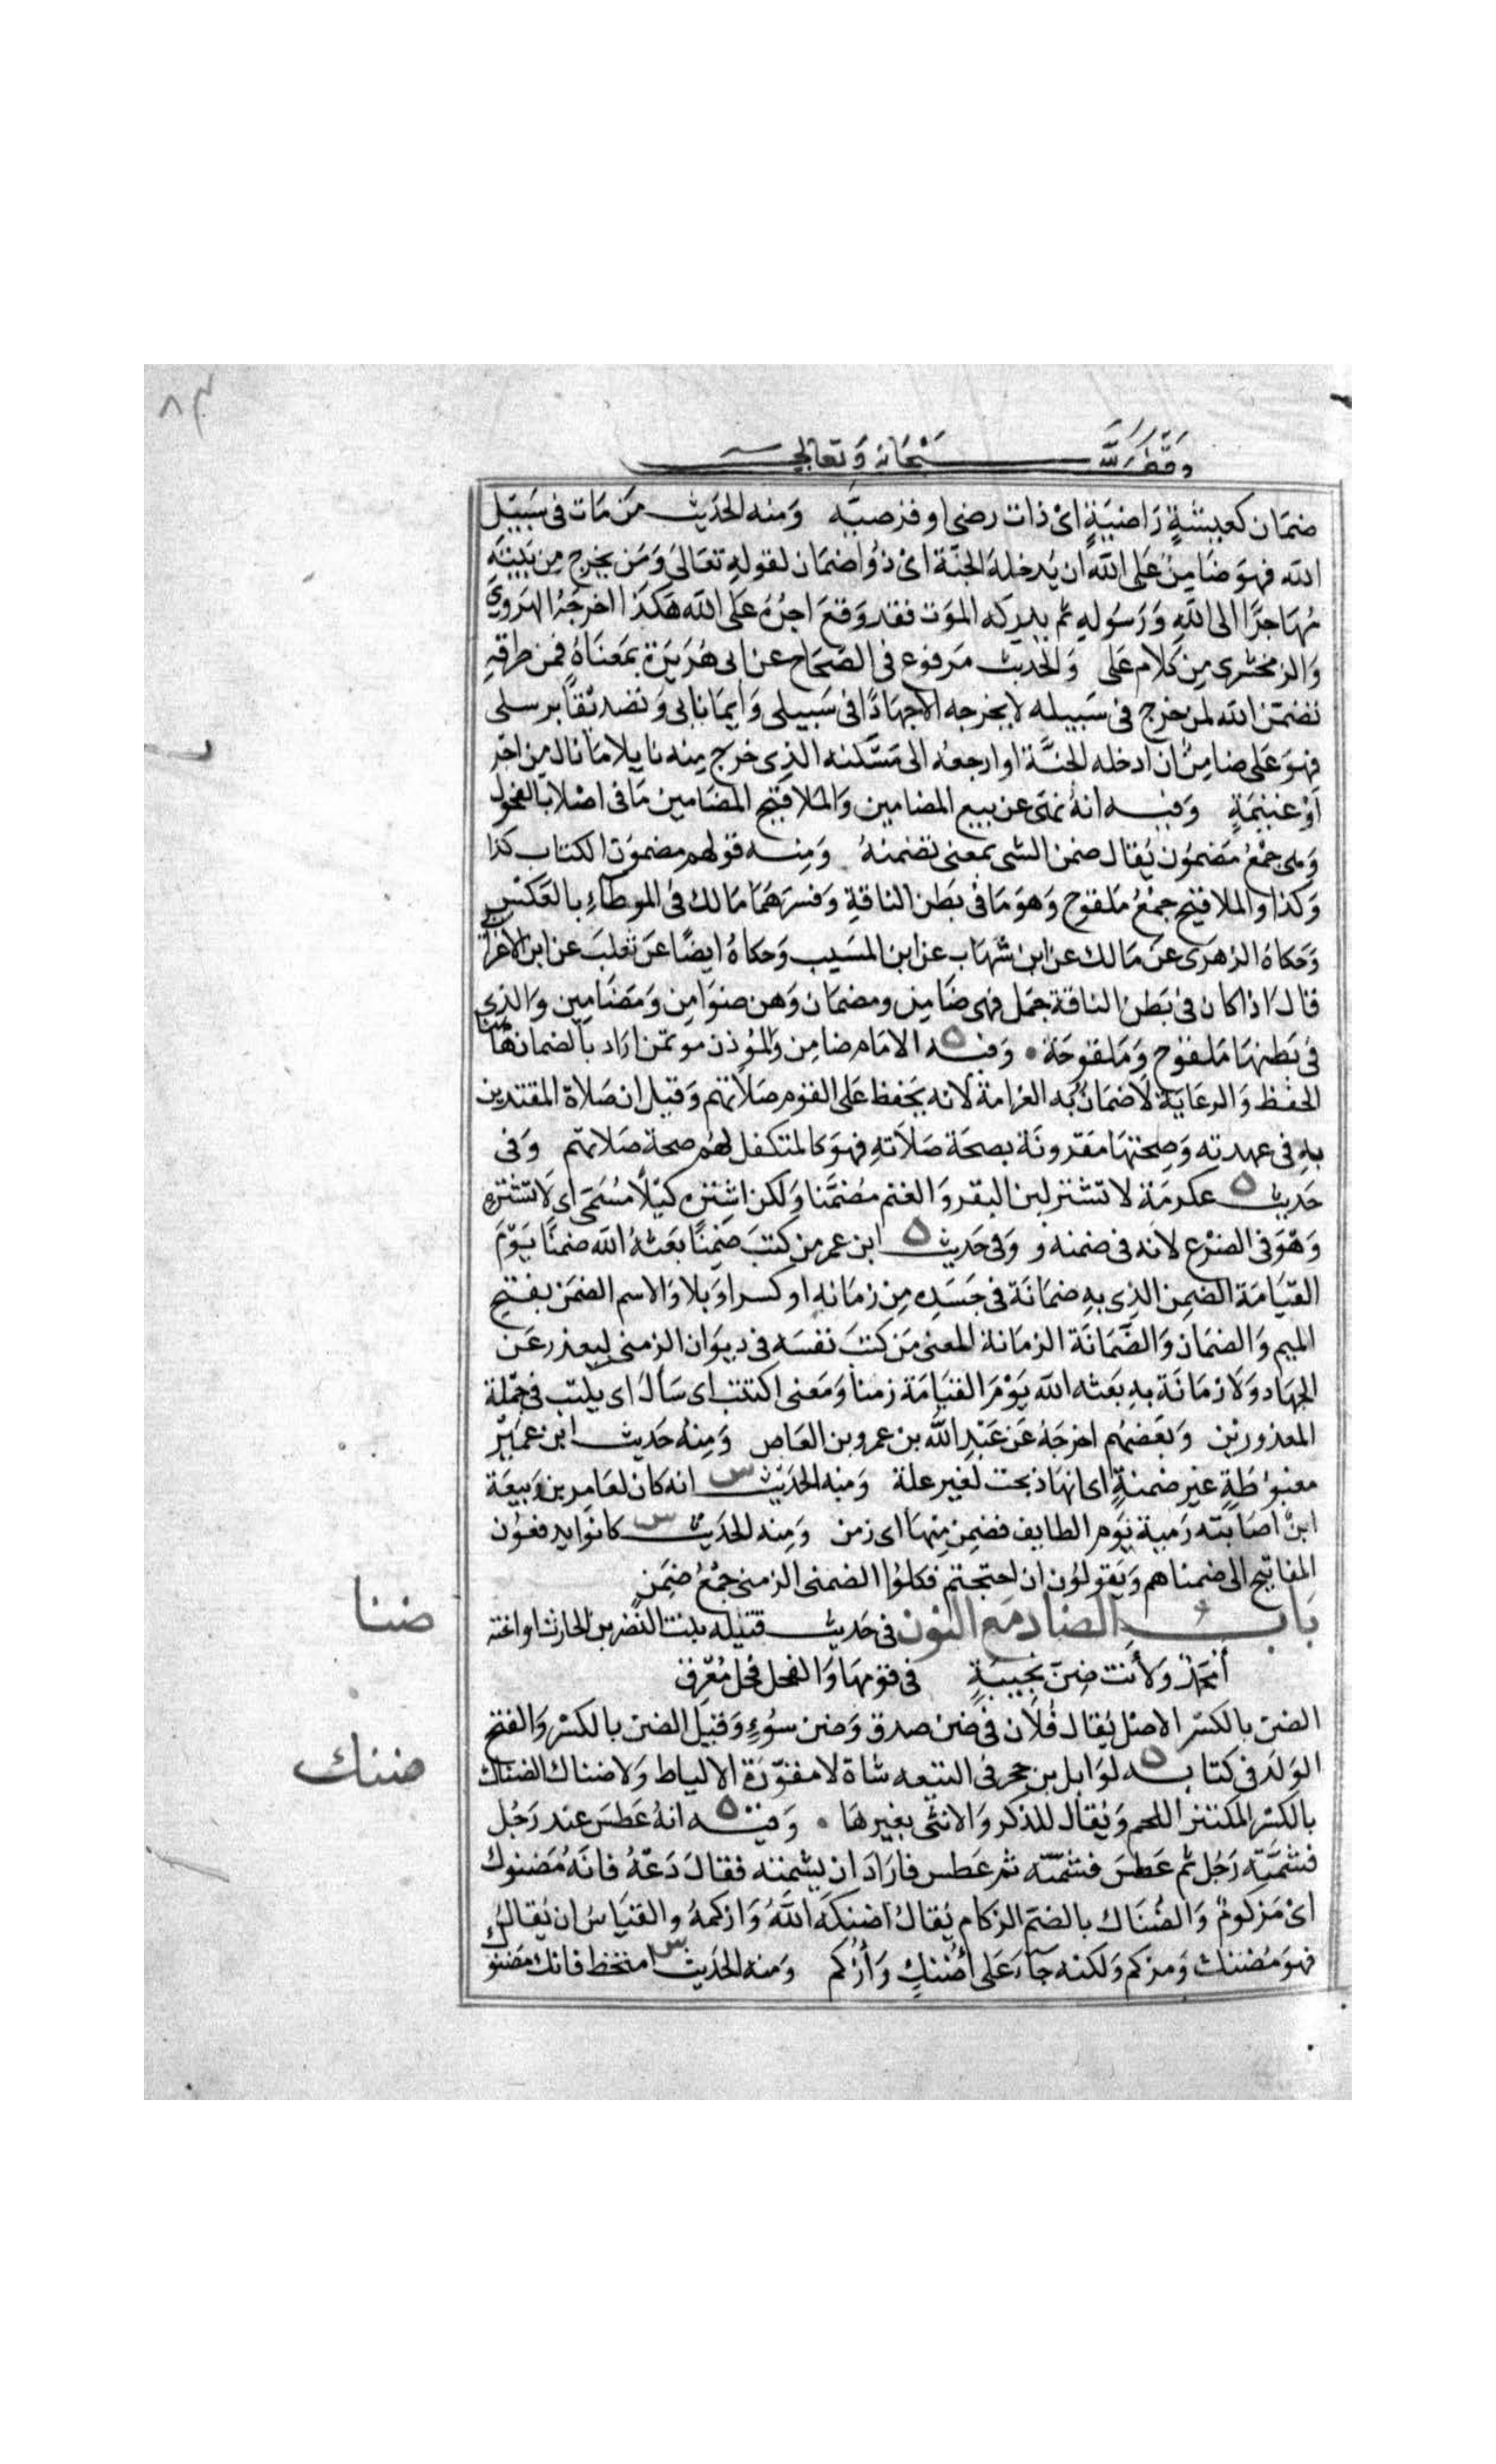 وقف لله سبحانه وتعالى
ضمان كعيشةٍ راضيةٍ اى ذات رضى او ومنه الحديث من مات فى سبيل
الله فهو ضامن على الله ان يدخله الجنة اى ذو اضمان لقوله تعالى ومن يخرج من بيته
مهاجرًا الى الله ورسوله ثم يدركه الموت فقد وقع اجره على الله هكذا اخرجه الهروى
والزمخشرى من كلام على والحديث مرفوع فى الصحاح عن ابى هريرة بمعناه فمن طرقه
تضمن الله لمن خرج فى سبيله لا يخرجه الا جهادًا فى سبيلى وايمانا بى وتصديقًا برسلى
فهو على ضامن ان ادخله الجنة او ارجعه الى مسكنه الذى خرج منه نايلا ما نال من اجر
او غنيمةٍ وفيه انه نهى عن بيع المضامين والملاقيح المضامين ما فى اصلاب الفحول
وهى جمع مضمون يقال ضمن الشى بمعنى تضمنه ومنه قولهم مضمون الكتاب كذا
وكذا والملاقيح جمع ملقوح وهو ما فى بطن الناقة وفسرهما مالك فى الموطاء بالعكس
وحكاه الزهرى عن مالك عن ابن شهاب عن ابن المسيب وحكاه ايضًا عن ثعلب عن ابن الاعرابى
قال اذا كان فى بطن الناقة جمل فهى ضامن ومضمان وهن ضوامن ومضامين والذى
فى بطنها ملقوح وملقوحة وفيه ه الامام ضامن والمؤذن موتمن اراد بالضمان هاهنا
الحفظ والرعاية لا ضمان به الغرامة لانه يحفظ على القوم صلاتهم وقيل ان صلاة المقتدين
به فى عهدته وصحتها مقرونة بصحة صلاته فهو كالمتكفل لهم صحة صلاتهم وفى
حديث ه عكرمة لا تشتر لبن البقر والغنم مضمنا ولكن اشتره كيلًا مسمى اى لا تشتره
وهو فى الضرع لانه فى ضمنه وفى حديث ه ابن عمر من كتب ضمنًا بعثه الله ضمنًا يوم
القيامة الضمن الذى به ضمانة فى جسده من زمانه او كسر او بلا والاسم الضمن بفتح
الميم والضمان والضمانة الزمانة المعنى من كتب نفسه فى ديوان الزمنى ليعذر عن
الجهاد ولا زمانة به بعثه الله يوم القيامة زمنا ومعنى اكتتب اى سأل اى يكتب فى جملة
المعذورين وبعضهم اخرجه عن عبد الله بن عمرو بن العاص ومنه حديث ابن عمير
معبوطةٍ غير ضمنةٍ اى انها ذبحت لغير علة ومنه الحديث س انه كان لعامر بن ربيعة
ابن اصابته رمية يوم الطايف فضمن منها اى زمن ومنه الحديث س كانوا يدفعون
المفاتيح الى ضمناهم ويقولون ان احتجتم فكلوا الضمنى الزمنى جمع ضمن
باب الضاد مع النون فى حديث قتيلة بنت النضر بن الحارث او اخته
ضنا
أمحمدٌ ولأنت ضن نجيبةٍ فى قومها والفحل فحل معرق
الضن بالكسر الاصل يقال فلان فى ضن صدق وضن سوءٍ وقيل الضن بالكسر والفتح
الولد فى كتابه ه لوايل بن حجر فى التيعه شاة لا مقورة الالياط ولا ضناك الضناك
ضنك
بالكسر المكتنز اللحم ويقال للذكر والانثى بغير ها وفيه ه انه عطس عند رجل
فشمته رجل ثم عطس فشمته ثم عطس فاراد ان يشمته فقال دعه فانه مضنوك
اى مزكوم والضناك بالضم الزكام يقال اضنكه الله وازكمه والقياس ان يقال
فهو مضنك ومزكم ولكنه جآء على أضنك وأزكم ومنه الحديث س امتخط فانك مضنوك